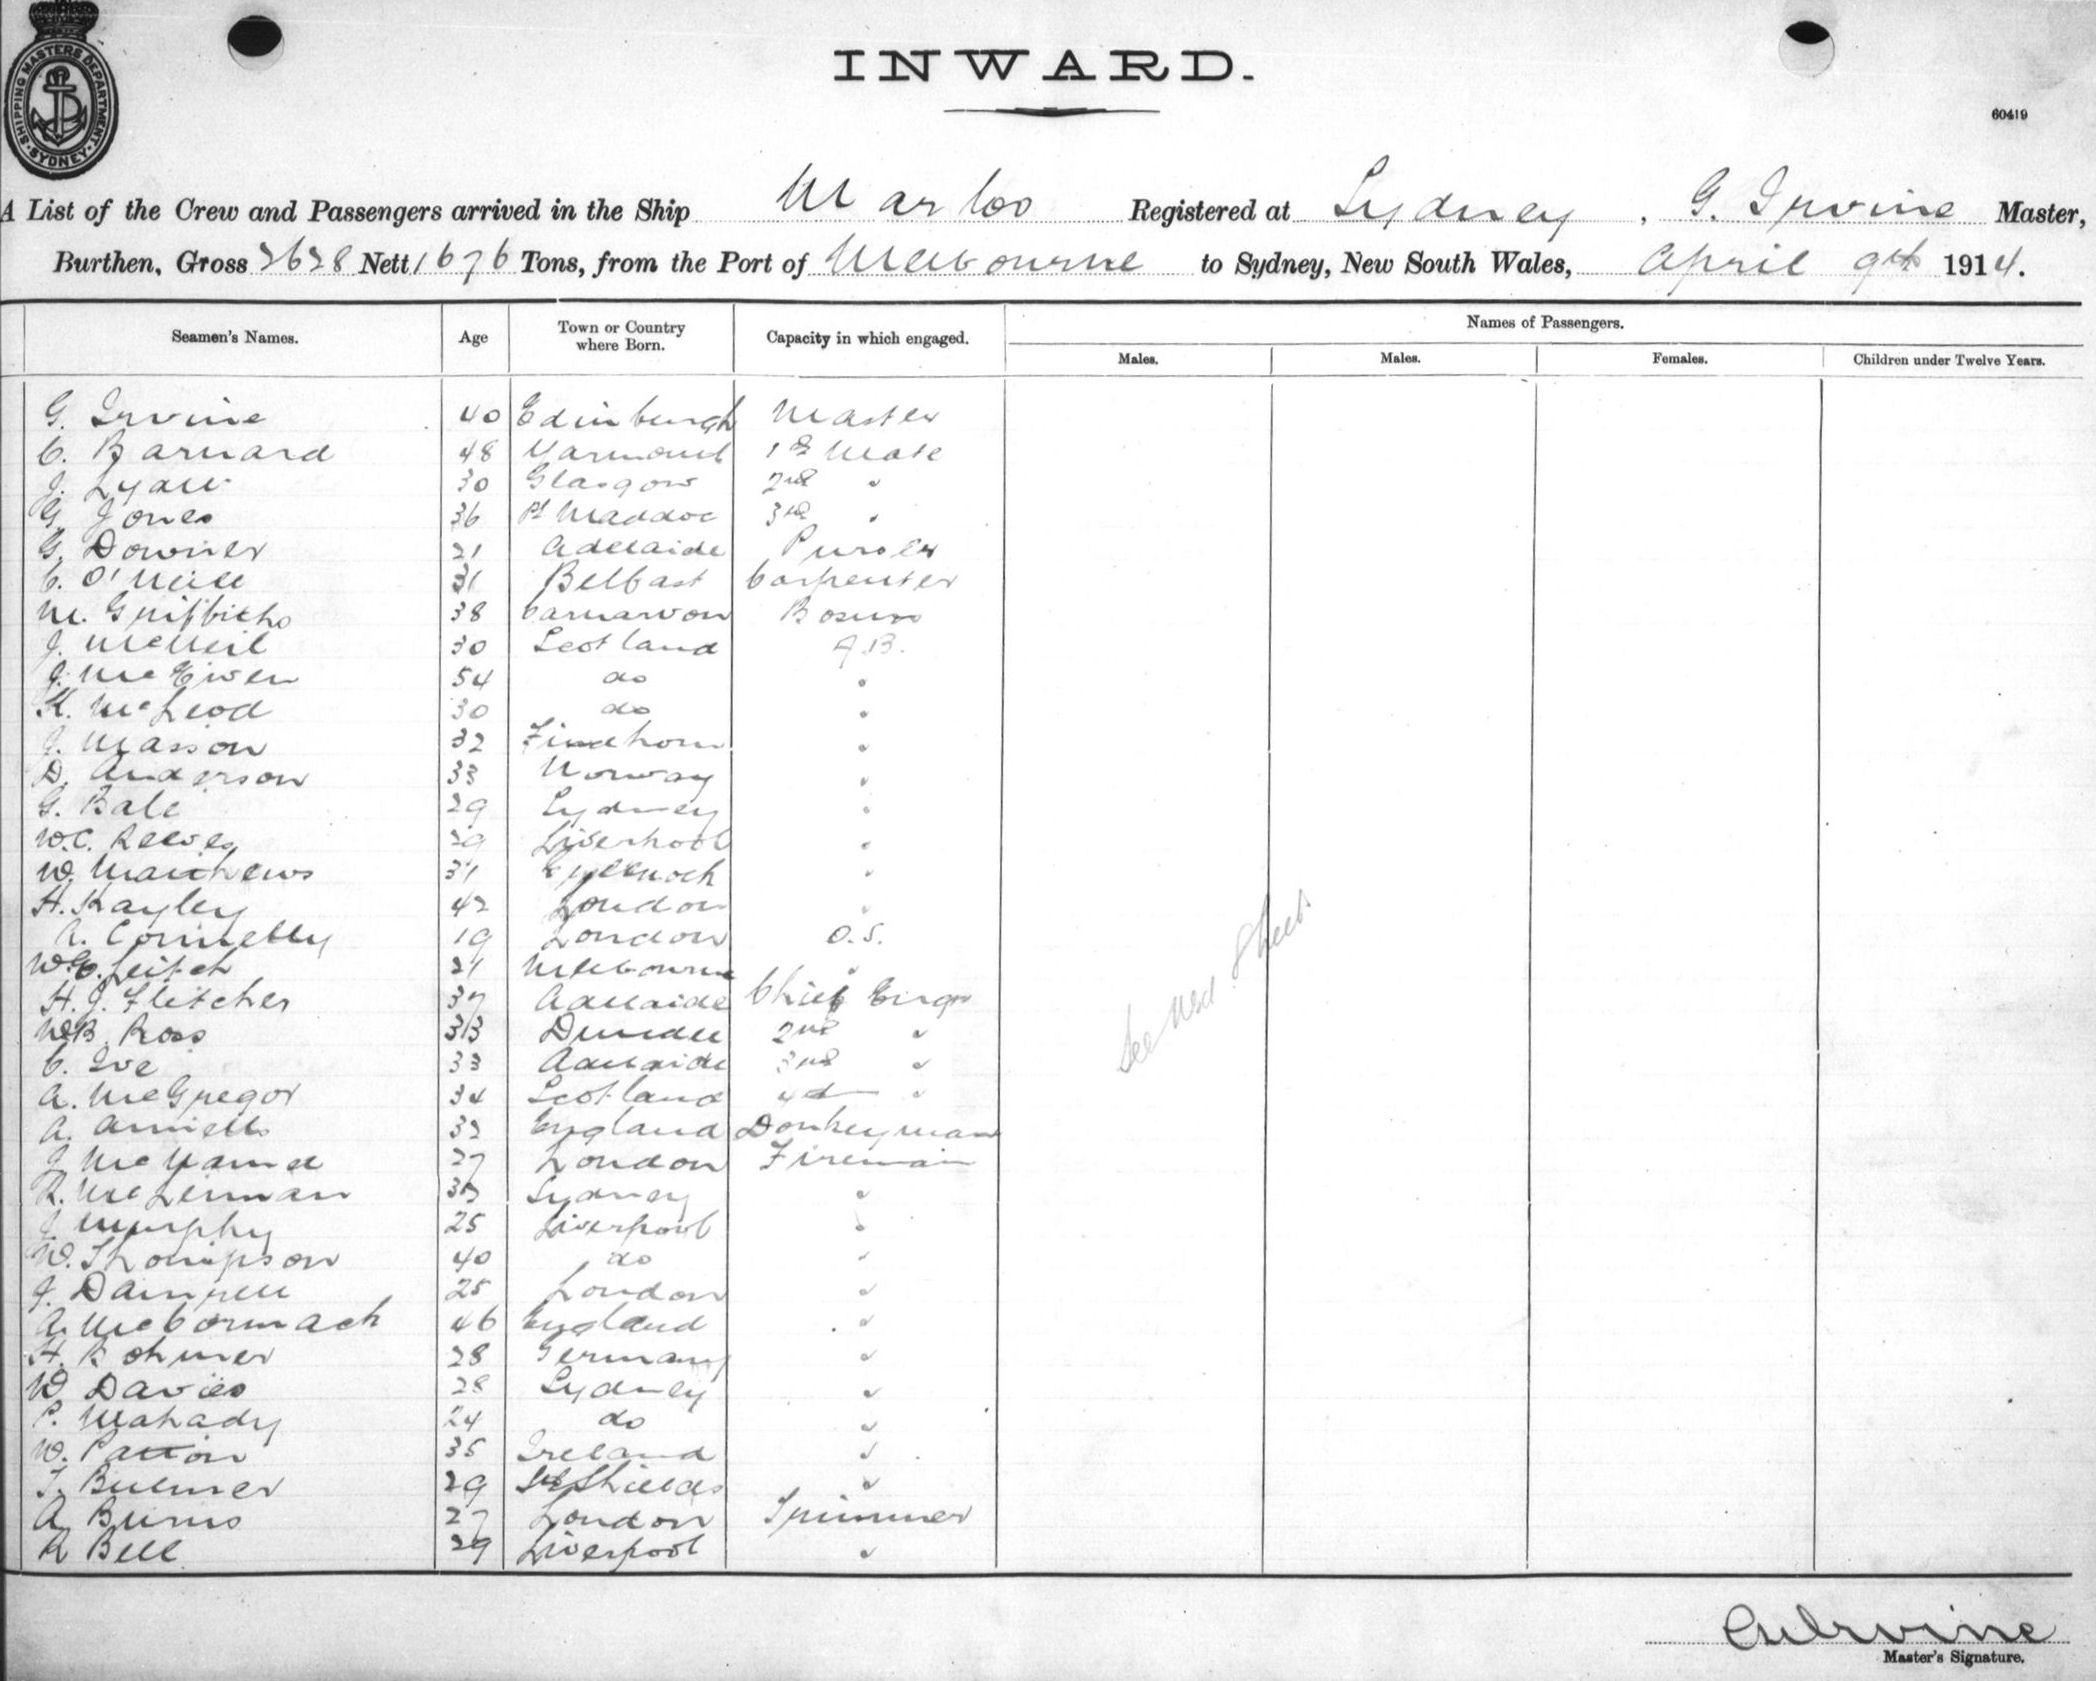 SHIPPING MASTERS DEPARTMENT. SYDNEY
INWARD.
60419
A List of the Crew and Passengers arrived in the Ship Marloo Registered at Sydney, G. Irvine Master,
Burthen, Gross 2628 Nett 1676 Tons, from the Port of Melbourne to Sydney, New South Wales, April 9th 1914.
Seamen's Names. Age Town or Country where Born. Capacity in which engaged. Names of Passengers.
Males. Males. Females. Children under Twelve Years.
G. Irvine 40 Edinburgh Master
C. Barnard 48 Yarmouth 1st Mate
J. Lyall 30 Glasgow 2nd "
G. Jones 36 Pt Maddoc 3rd "
G. Downer 21 Adelaide Purser
C. O'Neill 31 Belfast Carpenter
M. Griffiths 38 Carnarvon Bosun
J. McNeil 30 Scotland A.B.
J. McEwen 54 do "
K. McLeod 30 do "
J. Masson 32 Findhorn "
D. Anderson 33 Norway "
G. Bale 29 Sydney "
W.C. Reeves 29 Liverpool "
W. Matthews 31 "
H. Kayley 42 London "
A. Connelly 19 London O.S.
Leitch 21 Melbourne "
H. J. Fletcher 37 Adelaide Chief Engr
W.B. Ross 33 Dundee 2nd "
C. Ive 33 Adelaide 3rd "
A. McGregor 34 Scotland 4th "
A. 32 England Donkeyman
J. 27 London Fireman
R. McLennan Sydney "
J. Murphy 25 Liverpool "
W. Thompson 40 do "
J. 25 London "
A. McCormack 46 England "
H. Bohmer 28 Germany "
W. Davies 28 Sydney "
P. Mahady 24 do "
W. Patton 35 Ireland "
T. Bulmer 29 Shields "
A. Burns 27 London Trimmer
R Bell 29 Liverpool "
See Sheet
Irvine
Master's Signature.